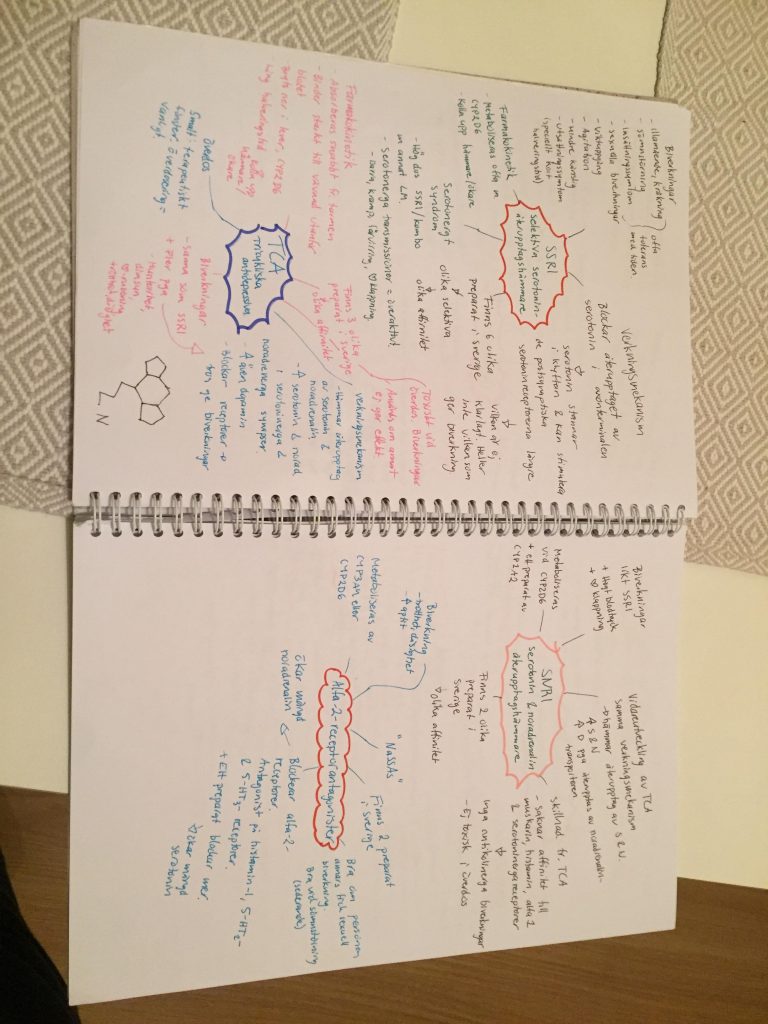 Biverkningar
- illamående, kräkning
- sömnstörning
- insättningssymtom
} ofta
tolerans
med tiden
- sexuella biverkningar
- viktuppgång
- Agitation
- mindre vanlig
- utsättningssymtom
(speciellt kort
halveringstid)
Farmakokinetik
- Metaboliseras ofta m
CYP2D6
- Kolla upp hämmare/ökare
SSRI
selektiva serotonin-
återupptagshämmare
Verkningsmekanism
Blockar återupptaget av
serotonin i axonterminalen
serotonin stannar
i klyftan & kan stimulera
de postsynaptiska
serotoninreceptorerna längre
Finns 6 olika
preparat i sverige
olika selektiva
olika affinitet
vilken är ej
klarlagt. Heller
inte vilken som
ger biverkning
Serotonergt
syndrom
- Hög dos SSRI/kombo
m annat LM.
- Serotonerga transmissioner = överaktivt
- darra, kramp, förvirring, ♡ klappning.
Farmakokinetik
Absorberas snabbt fr. tarmen
- Binder starkt till vävnad utanför
blodet
Bryts ner i lever, CYP2D6
Lång halveringstid
kolla upp
hämmare/
ökare
TCA
Tricykliska
antidepressiva
Finns 3 olika
preparat i sverige
olika affinitet
Toxiskt vid
överdos. Biverkningar
Används om annat
ej ger effekt
verkningsmekanism
- Hämmar återupptag
av serotonin &
noradrenalin
- ↑ serotonin & norad
i serotoninerga &
noradrenerga synapser
- ↑ även dopamin
- Blockar receptorer →
som ge biverkningar
Överdos
Smalt terapeutiskt
fönster: överdosering =
vanligt
Biverkningar
- samma som SSRI
+ Fler pga
- Muntorrhet
♡ rusning
trötthet, dåsighet
N
Biverkningar
likt SSRI
+ Högt blodtryck
+ ♡ klappning
Metaboliseras
via CYP2D6
+ ett preparat av
CYP1A2
SNRI
serotonin & noradrenalin
återupptagshämmare
Vidareutveckling av TCA
samma verkningsmekanism
→ hämmar återupptag av S & N.
↑ S & N
↑ D pga återupptas av noradrenalin-
transportören
skillnad fr. TCA
- saknar affinitet till
muskarin, histamin, alfa 2
& serotoninerga receptorer
Inga antikolinerga biverkningar
- Ej toxisk i överdos
Finns 2 olika
preparat i
sverige
olika affinitet
Biverkning
- trötthet, dåsighet
- ↑ aptit
Metaboliseras av
CYP3A4 eller
CYP2D6
"NaSSAs"
Alfa-2-receptorantagonister
Finns 2 preparat
i sverige
Bra om personen
annars fick sexuell
biverkning.
Bra vid sömnstörning
(sederande)
Blockerar alfa-2-
receptorer.
ökar mängd
noradrenalin
Antagonist på histamin-1, 5-HT2-
& 5-HT3-receptorer.
+ Ett preparat blockar mer.
ökar mängd
serotonin